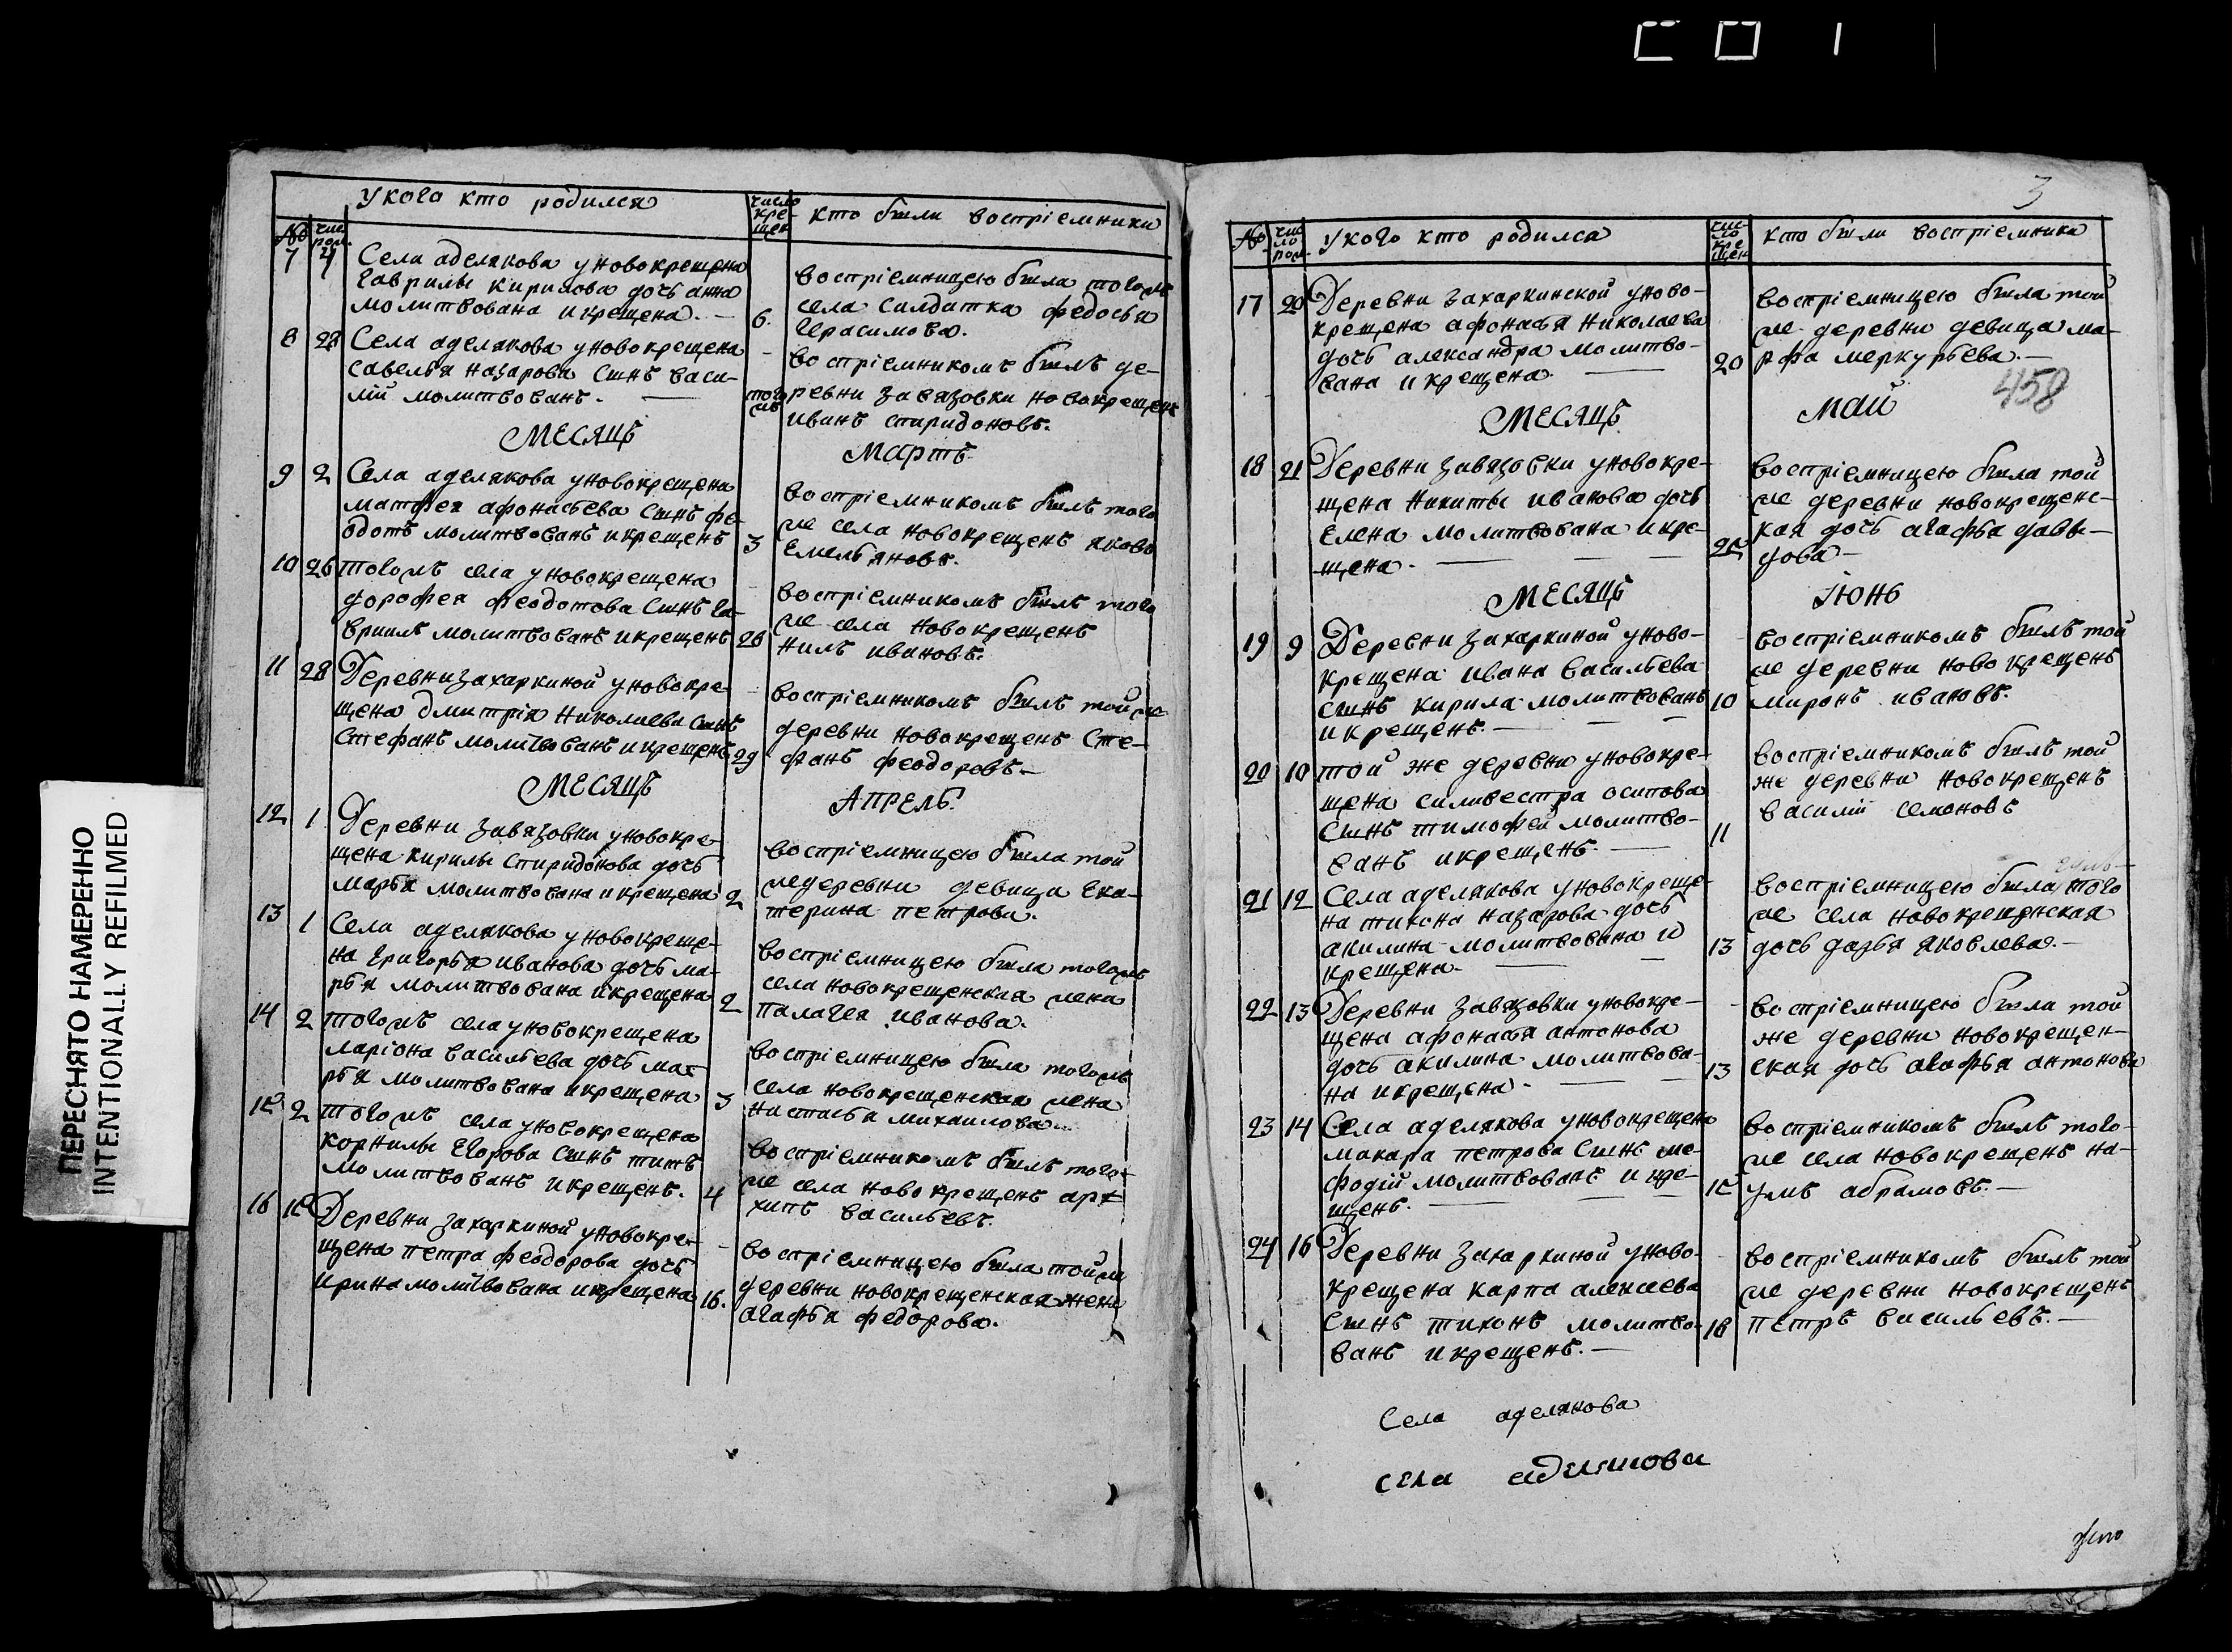 ПЕРЕСНЯТО НАМЕРЕННО
INTENTIONALLY REFILMED
У кого кто родился
число кре-щен
кто были воспріемники
№
чис. рож.
7 4 Села аделякова у новокрещена
гаврилы кирилова дочь анна
молитвована и крещена. —
6. воспріемницею была тогожъ
села салдатка федосья
Герасимова.
8 28 Села аделякова у новокрещена
савелья назарова сынъ васи-
лій молитвованъ. —
того жъ воспріемникомъ былъ де-
ревни завязовки новокрещенъ
иванъ спиридоновъ.
МЕСЯЦЪ Мартъ
9 2 Села аделякова у новокрещена
матфея афонасьева сынъ фе-
одотъ молитвованъ и крещенъ
3 воспріемникомъ былъ того
же села новокрещенъ яковъ
Емельяновъ.
10 26 тогожъ села у новокрещена
дорофея феодотова сынъ га-
вриилъ молитвованъ и крещенъ
26 воспріемникомъ былъ того
же села новокрещенъ
нилъ ивановъ.
11 28 Деревни захаркиной у новокре-
щена дмитрія николаева сынъ
стефанъ молитвованъ и крещенъ
29 воспріемникомъ былъ той же
деревни новокрещенъ сте-
фанъ феодоровъ. —
МЕСЯЦЪ АПРЕЛЬ.
12 1 Деревни завязовки у новокре-
щена кирилы спиридонова дочь
марья молитвована и крещена
2 воспріемницею была той
же деревни девица ека-
терина петрова.
13 1 Села аделякова у новокреще-
на григорья иванова дочь ма-
рья молитвована и крещена
2 воспріемницею была тогожъ
села новокрещенская жена
палагея иванова.
14 2 тогожъ села у новокрещена
ларіона васильева дочь мар
рья молитвована и крещена
3 воспріемницею была тогожъ
села новокрещенская жена
настасья михаилова.
15 2 тогожъ села у новокрещена
корнилы егорова сынъ титъ
молитвованъ и крещенъ.
4 воспріемникомъ былъ того-
же села новокрещенъ ар-
хипъ васильевъ.
16 15 Деревни захаркиной у новокре-
щена петра феодорова дочь
ирина молитвована и крещена
16. воспріемницею была той же
деревни новокрещенская жена
агафья федорова.
3
№
чис ло рож.
У кого кто родился
чис-ло кре щен
кто были воспріемники
17 20 Деревни захаркинской у ново-
крещена афонасья николаева
дочь александра молитво-
вана и крещена. —
20 воспріемницею была той
же деревни девица ма-
рфа меркурьева. —
458
МЕСЯЦЪ май
18 21 Деревни завязовки у новокре-
щена никиты иванова дочь
елена молитвована и кре-
щена. —
воспріемницею была той
же деревни новокрещенс-
кая дочь агафья давы-
дова —
МЕСЯЦЪ Іюнь
19 9 Деревни захаркиной у ново-
крещена ивана васильева
сынъ кирила молитвованъ
и крещенъ. —
10 воспріемникомъ былъ той
же деревни новокрещенъ
миронъ ивановъ.
20 10 той же деревни у новокре-
щена силивестра осипова
сынъ тимофей молитво-
ванъ и крещенъ. —
11 воспріемникомъ былъ той
же деревни новокрещенъ
василій семоновъ
21 12 Села аделякова у новокреще-
на тихона назарова дочь
акилина молитвована и
крещена. —
13 воспріемницею была того
же села новокрещенская
дочь дарья яковлева. —
22 13 Деревни завязовки у новокре-
щена афонасья антонова
дочь акилина молитвова-
на и крещена. —
13 воспріемницею была той
же деревни новокрещен-
ская дочь агафья антонова
23 14 Села аделякова у новокрещена
макара петрова сынъ ме-
фодій молитвованъ и кре-
щенъ. —
15 воспріемникомъ былъ того-
же села новокрещенъ на-
умъ абрамовъ. —
24 16 Деревни захаркиной у ново-
крещена карпа алексеева
сынъ тихонъ молитво-
ванъ и крещенъ. —
18 воспріемникомъ былъ той
же деревни новокрещенъ
петръ васильевъ. —
Села аделякова
села аделякова